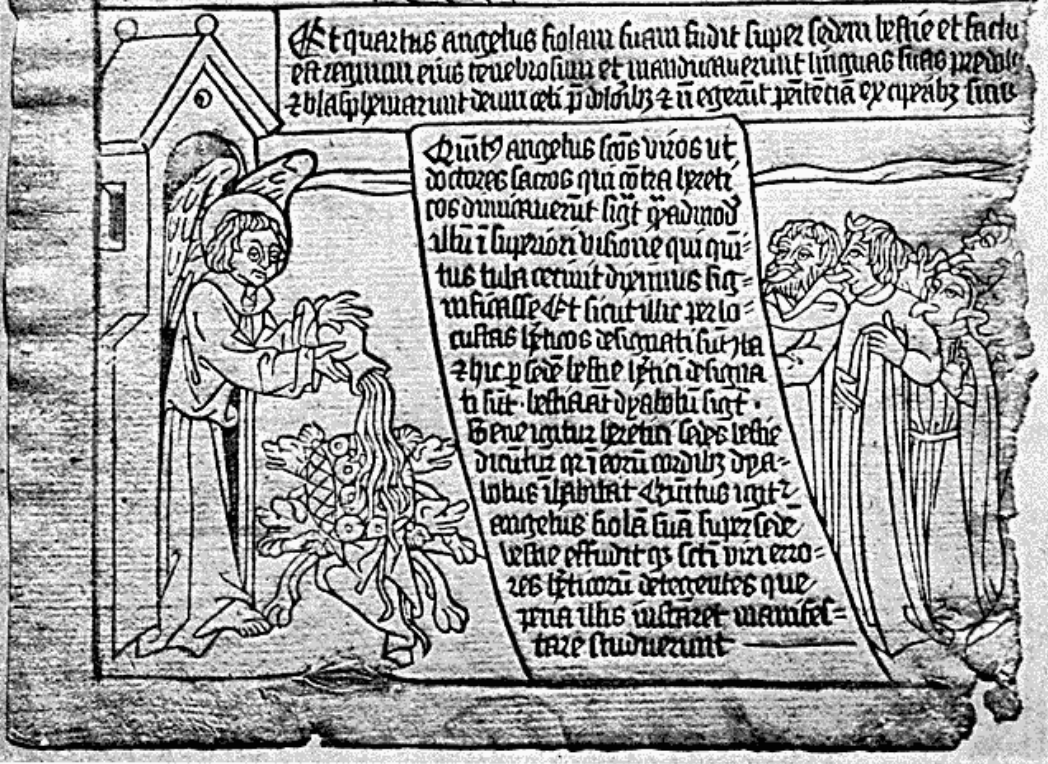 Et quartus angelus fiolam suam fudit super sedem bestie et factu
est regnum eius tenebrosum et manducauerunt linguas suas pre dolo
⁊ blasphemarunt deum celi p̄ dolōibꝫ ⁊ n̄ egerūt penitēciā ex operibꝫ suis
Quītꝰ angelus scōs viros ut
doctores sacros qui cōtra hereti
cos dimicauerūt sigt̄ quēadmod̄
illū ī superiori visione qui quī=
tus tuba cecinit dyximus sig=
nificasse Et sicut illic per lo=
custas hēticos designati sūt Ita
⁊ hic ꝑ sedē bestie hētici designa
ti sūt · bestia āt dyabolū sigt ·
Bene igitur heretici sedes bestie
dicūtur qꝛ ī eorū cordibꝫ dya=
bolus īhabitat Quītus igitꝛ
angelus fiolā suā super sedē
bestie effudit qꝫ scti viri erro=
res hēticorū detegentes que
pena illis īstaret manifes=
tare studuerunt